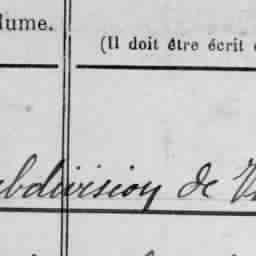 lume.
(Il doit être écrit
ubdivision de